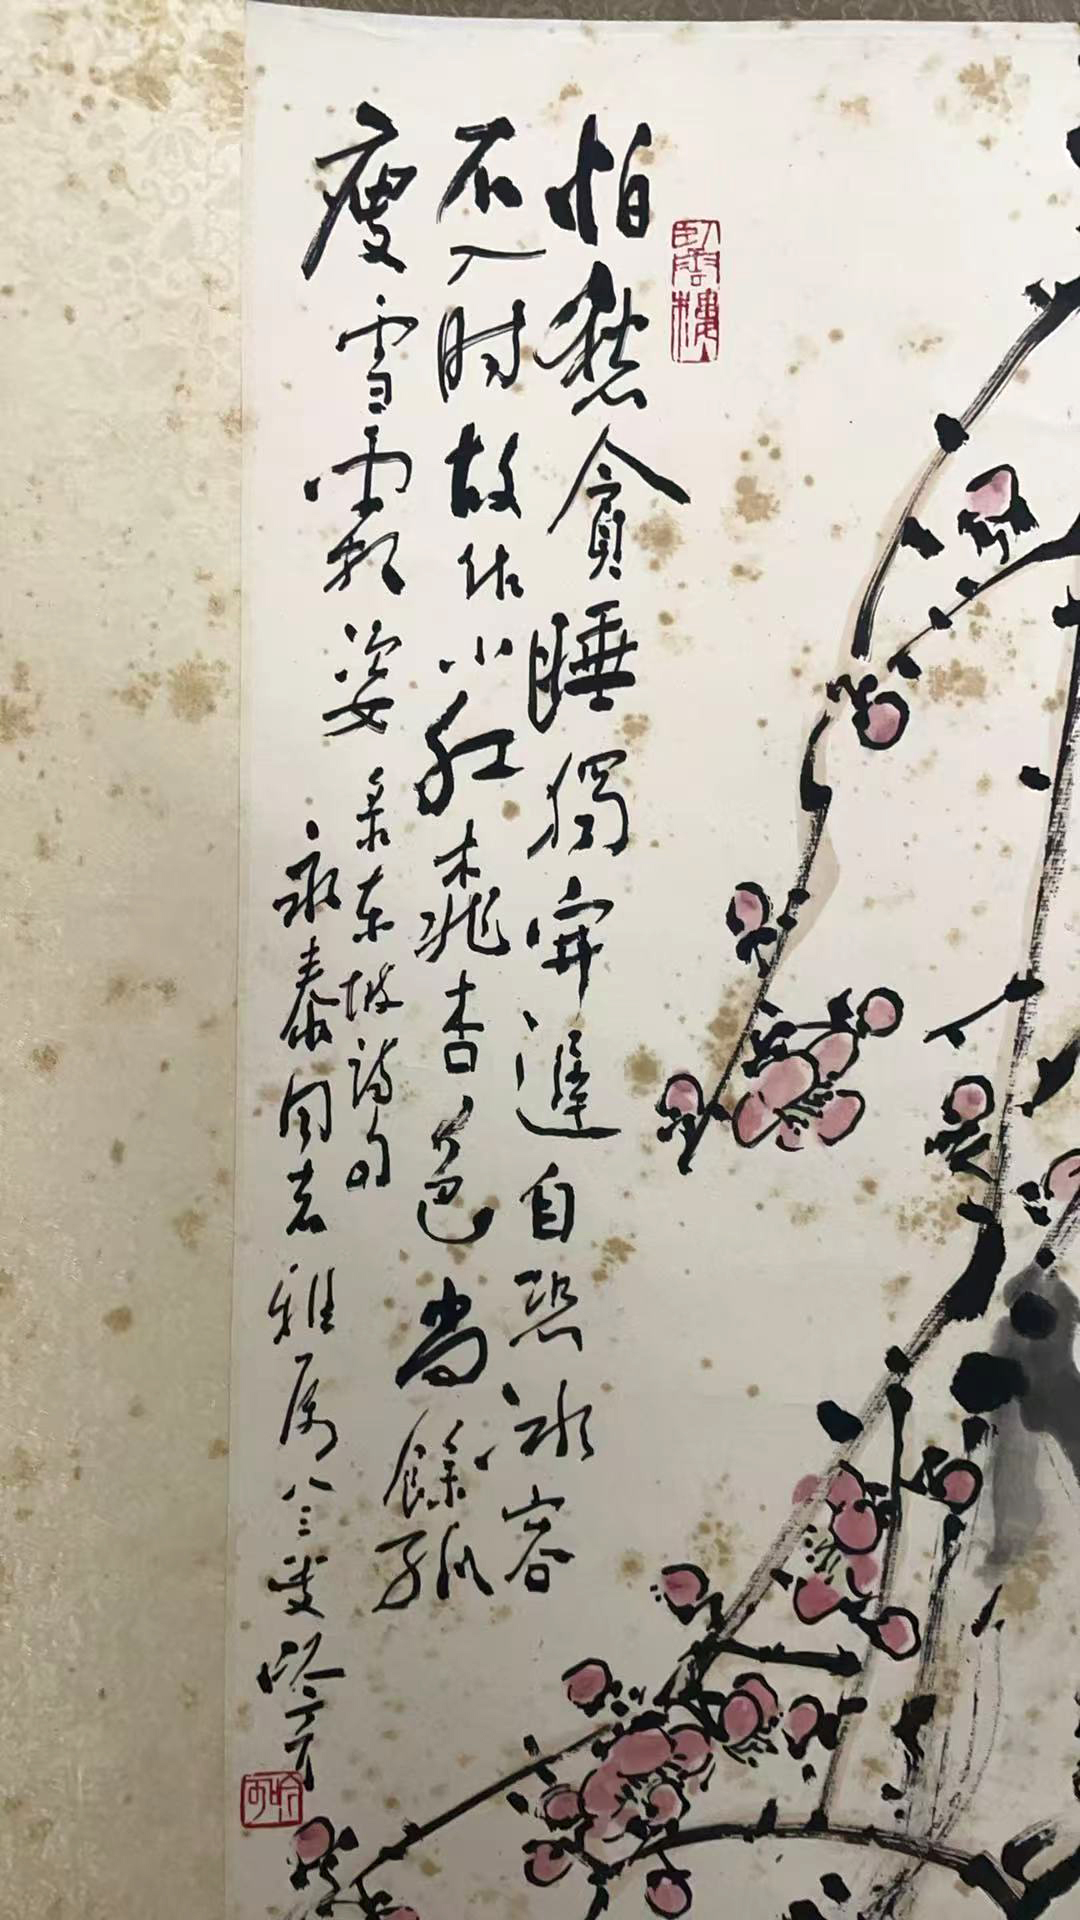 臥雲樓
怕愁貪睡獨开遲自恐冰容
不入时故作小红桃杏色尚餘孤
瘦雪霜姿 录东坡诗句
永泰同志雅属八三叟